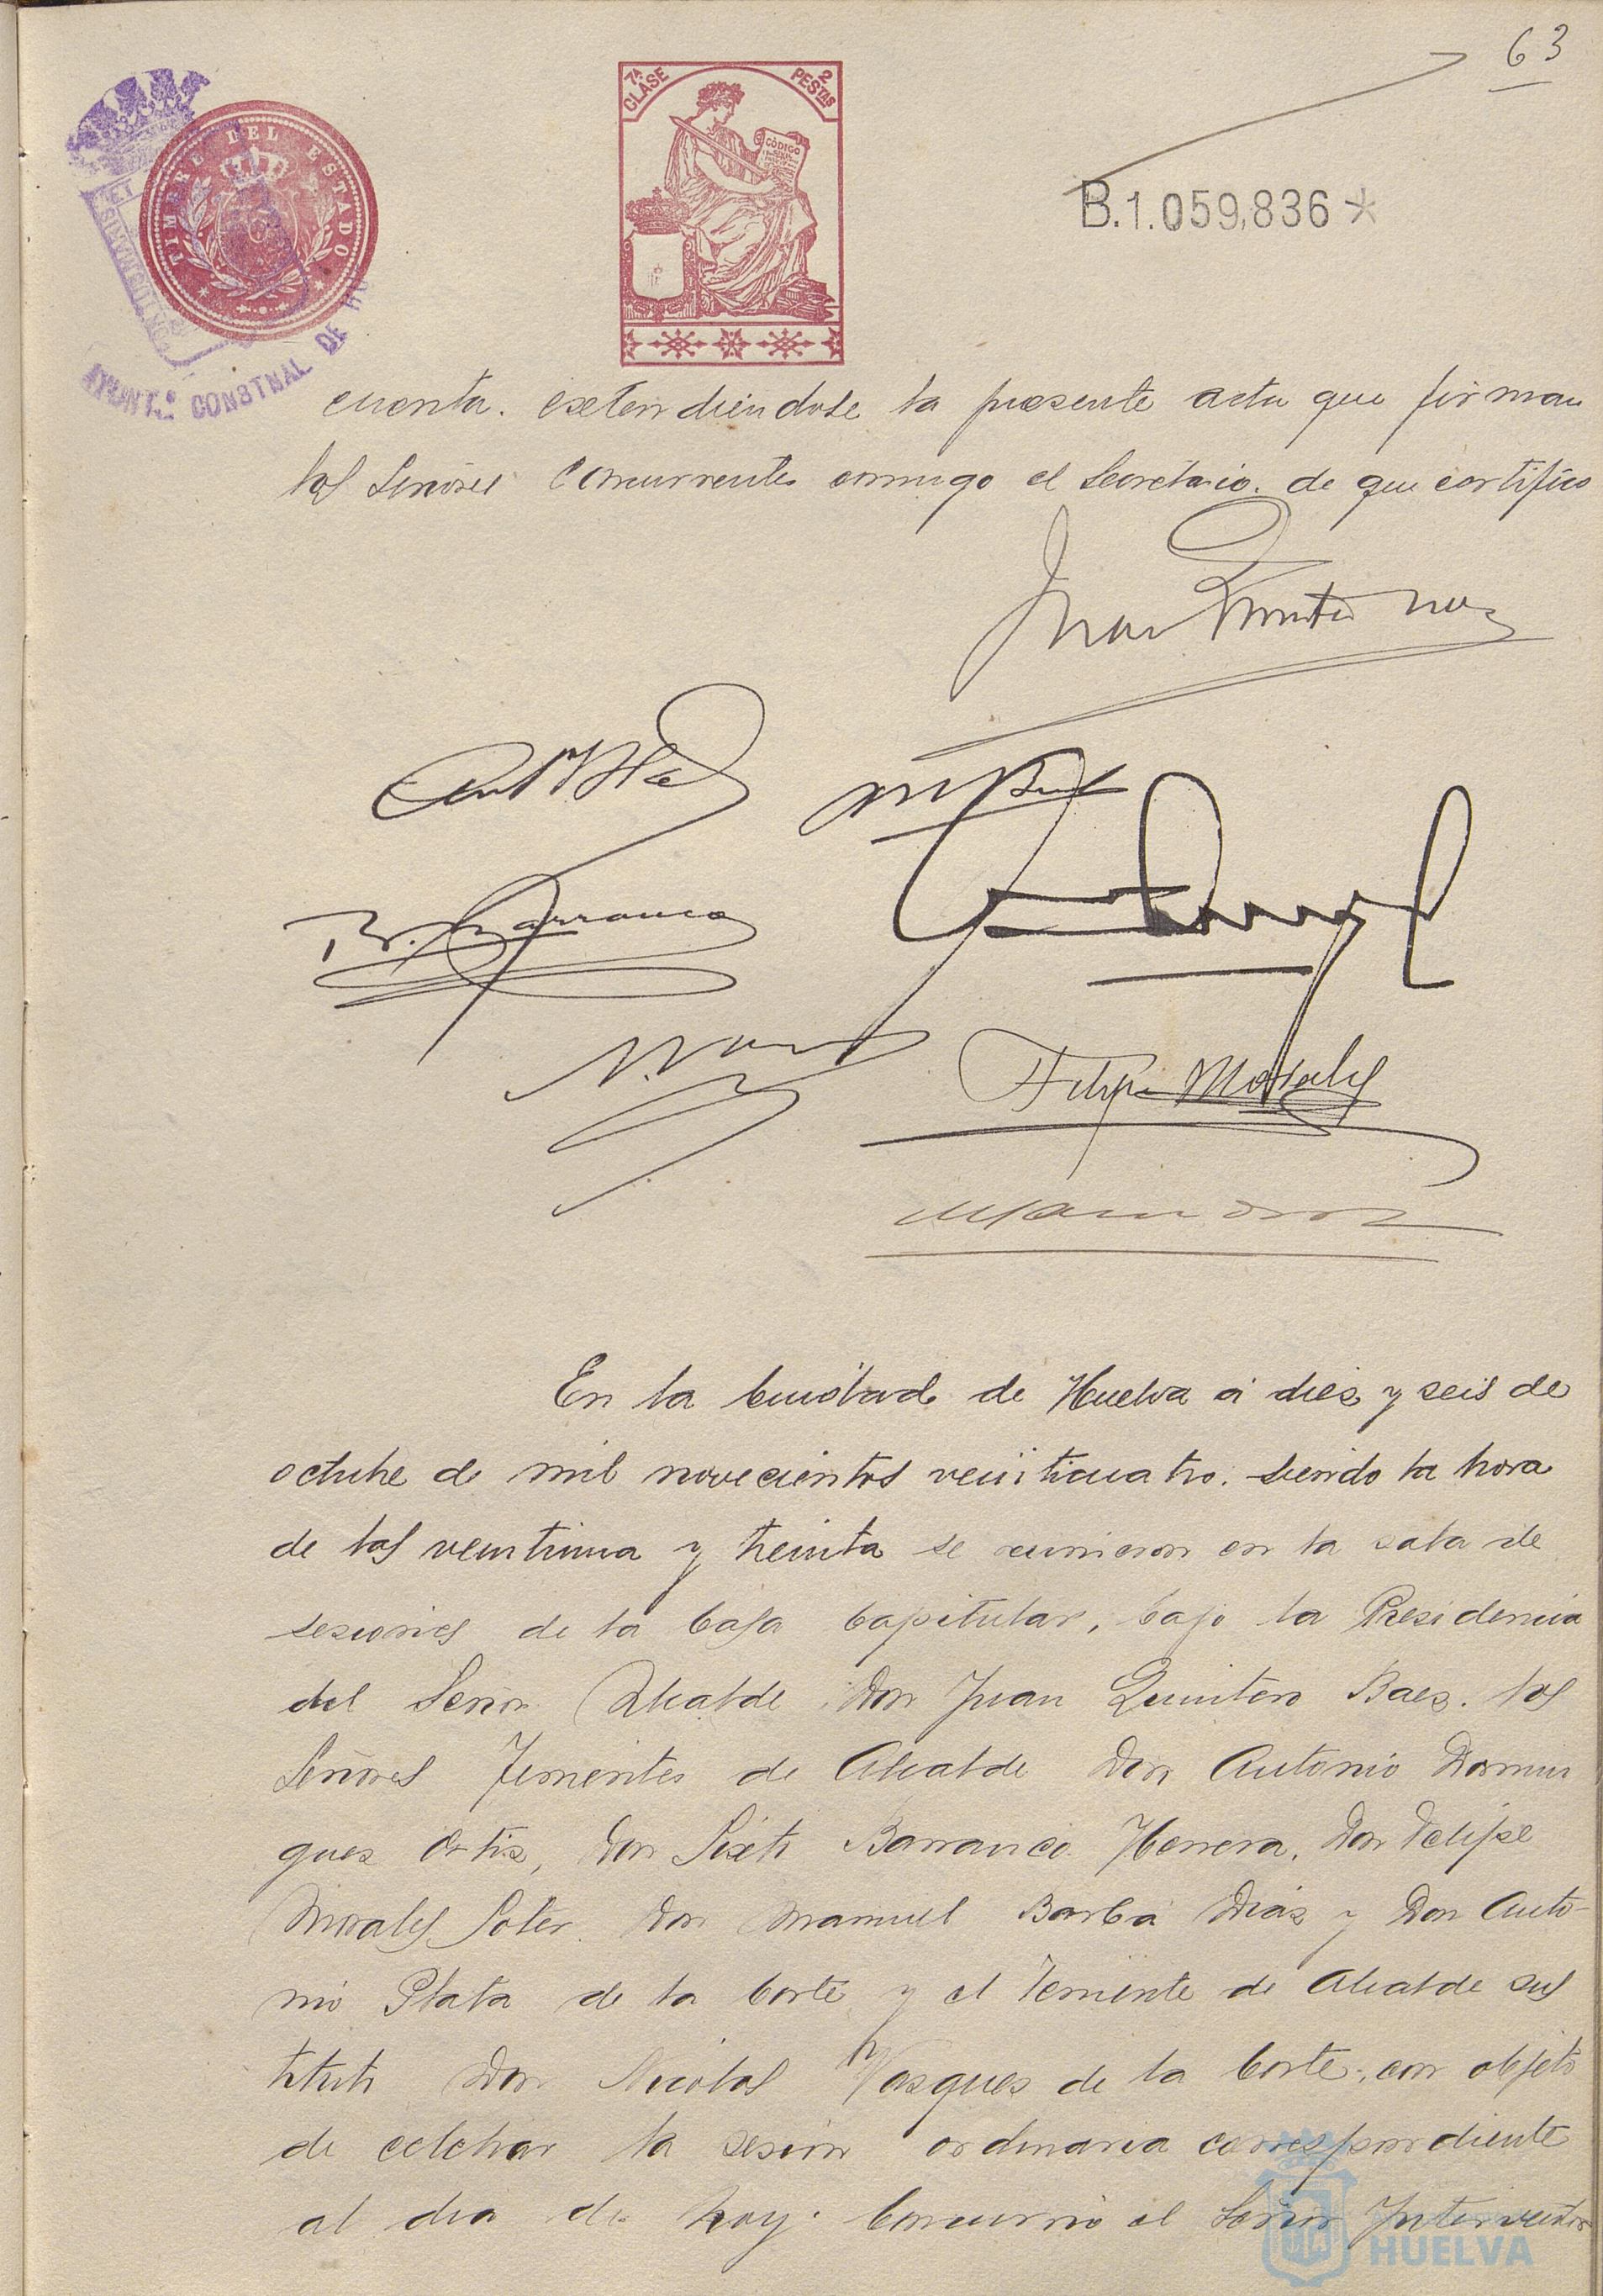 63
7ª CLASE
2 PESTAS
CÓDIGO
TIMBRE DEL ESTADO
AYUNT.º CONSTNAL DE HU
B.1.059,836*
cuenta. extendiéndose la presente acta que firman
los Señores Concurrentes conmigo el Secretario. de que certifico
Juan Quintero Baez
B. Barranco
Felipe Morales
En la Ciudad de Huelva a diez y seis de
octubre de mil novecientos veinticuatro. siendo la hora
de las veintiuna y treinta se reunieron en la sala de
sesiones de la Casa Capitular, bajo la Presidencia
del Señor Alcalde Don Juan Quintero Baez. los
Señores Tenientes de Alcalde Don Antonio Domin
guez Ortiz, Don Sixto Barranco Herrera, Don Felipe
Morales Soler. Don Manuel Barba Diáz y Don Anto-
nio Plata de la Corte y el Teniente de Alcalde sus
tituto Don Nicolas Vasquez de la Corte, con objeto
de celebrar la sesión ordinaria correspondiente
al dia de hoy. Concurrió el Señor Interventor
HUELVA